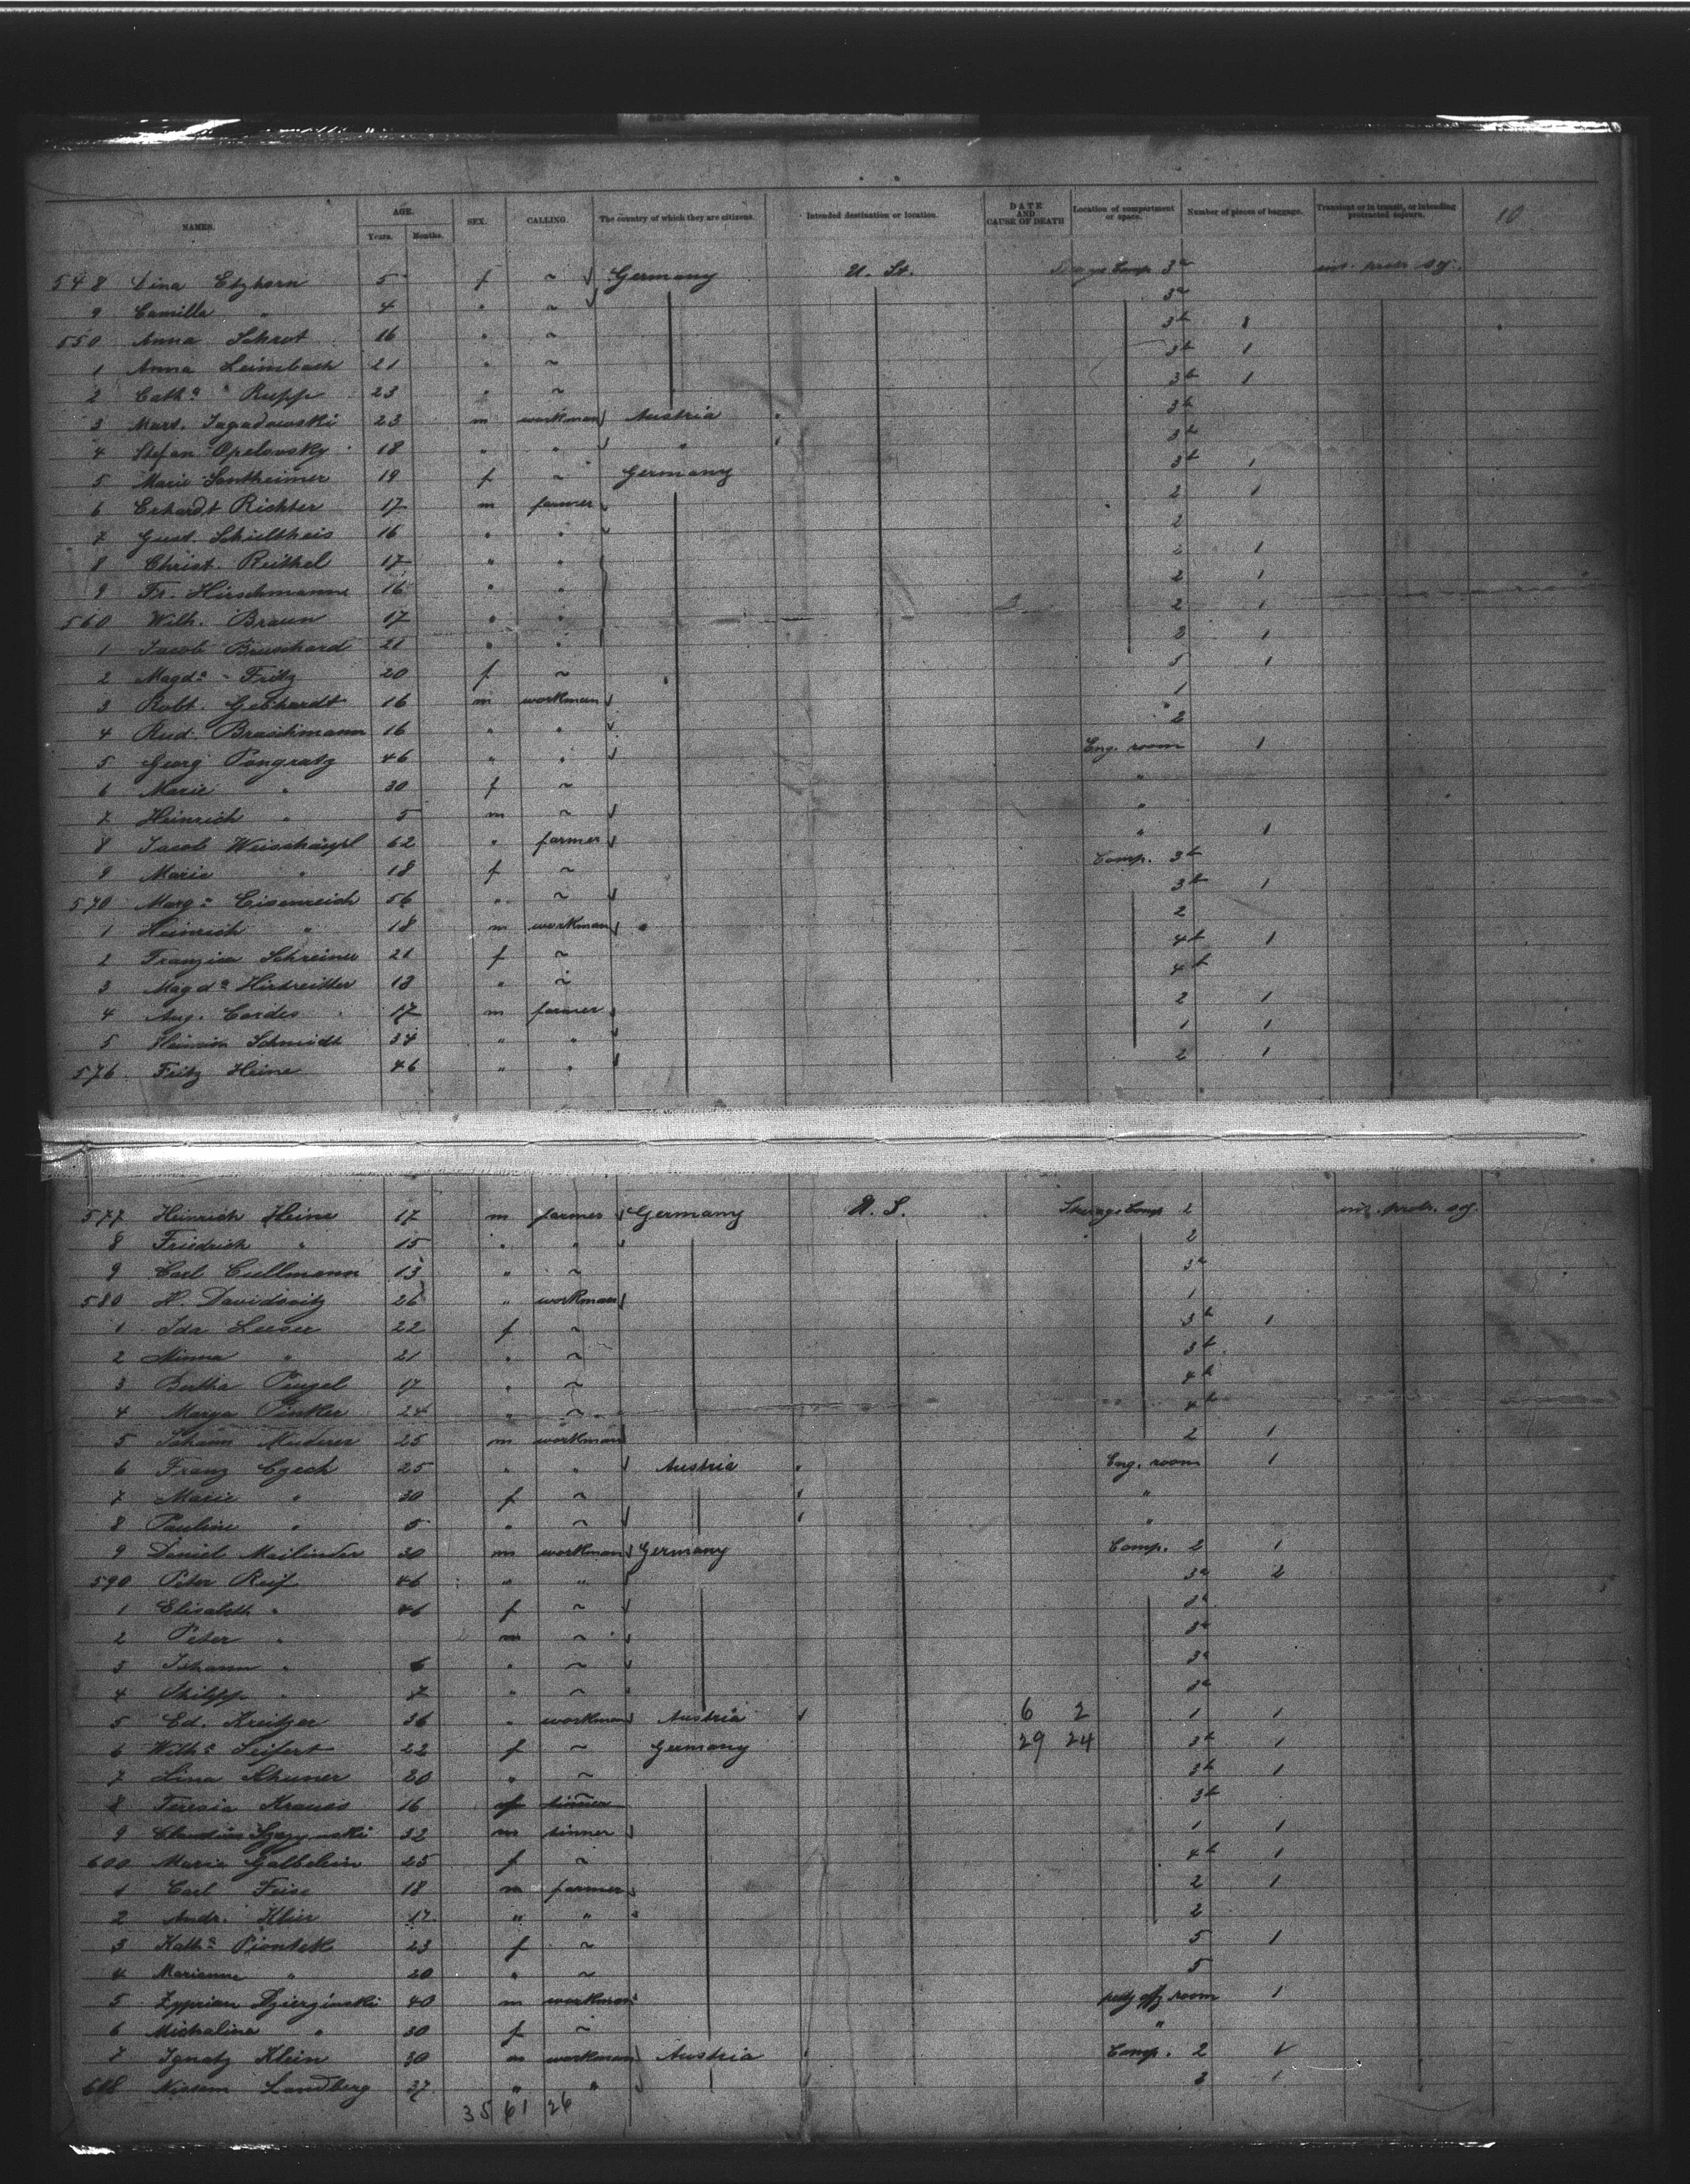 10
NAMES. AGE. Years. Months. SEX. CALLING. The country of which they are citizens. Intended destination or location. DATE AND CAUSE OF DEATH Location of compartment or space. Number of pieces of baggage. Transient or in transit, or intending protracted sojourn.
548 Lina Etzhorn 5 f ~ Germany U. St. Comp. 3a
9 Camilla " 4 " ~ 3a
550 Anna Schrot 16 " ~ 3b 1
1 Anna Leimbach 21 " ~ 3b 1
2 Catha Rupp 23 " ~ 3b 1
3 Mart. Jagadowski 23 m workman Austria " 3b
4 Stefan Opelovsky 18 " " " 3b
5 Marie Sontheimer 19 f ~ Germany 3b 1
6 Erhardt Richter 17 m farmer 2 1
7 Gust. Schultheis 16 " " 2
8 Christ. Reithel 17 " " 2 1
9 Fr. Hirschmann 16 " " 2 1
560 Wilh. Braun 17 " " 2 1
1 Jacob Bruschard 21 " " 2 1
2 Magda Fritz 20 f ~ 5 1
3 Robt. Gebhardt 16 m workman 1
4 Rud. Braschmann 16 " " 2
5 Georg Pongratz 46 " " Eng. room 1
6 Marie " 30 f ~ "
7 Heinrich " 5 m ~ "
8 Jacob 62 " farmer " 1
9 Maria " 18 f ~ Comp. 3b
570 Marga Eisenreich 56 " ~ 3b 1
1 Heinrich " 18 m workman 2
2 Schreiner 21 f ~ 4b 1
3 Magda Hirtreitter 18 " ~ 4b
4 Aug. Cordes 17 m farmer 2 1
5 Schmidt 34 " " 1 1
576 Fritz Heine 46 " " 2 1
577 Heinrich Heine 17 m farmer Germany U. S. Steerage Comp 2
8 Friedrich " 15 " " 2
9 Carl Cullmann 13 " ~ 3a
580 H. Davidsvitz 26 " workman 1
1 Ida Leeser 22 f ~ 3b 1
2 Minna " 21 " ~ 3b
3 Bertha 17 " ~ 4b
4 Pinkler 24 " ~ 4b
5 Johann Muderer 25 m workman 2 1
6 Franz Czech 25 " " Austria " Eng. room 1
7 Marie " 30 f ~ "
8 Pauline " 5 " ~ "
9 Daniel Mailinder 30 m workman Germany Comp. 2 1
590 Peter Reif 46 " " 3a 2
1 Elisabeth " 46 f ~ 3a
2 Peter " m ~ 3a
3 Johann " 6 " ~ 3a
4 Philipp " 7 " ~ 3a
5 Ed. Kreitzer 36 " workman Austria 6 2 1 1
6 Wilha Seifert 22 f ~ Germany 29 24 3b 1
7 Lina 20 " ~ 3b 1
8 Teresia Krauss 16 f 3b
9 32 m tinner 1 1
600 Maria 25 f ~ 4b 1
1 Carl Feise 18 m farmer 2 1
2 Andr. Klier 17 " " 2
3 Katha Piontek 23 f ~ 5 1
4 Marianne " 20 " ~ 5
5 Zyprian 40 m workman room 1
6 Michalina " 30 f ~ "
7 Ignatz Klein 30 m workman Austria Comp. 2 1
608 Landberg 37 " " 2 1
35 61 26